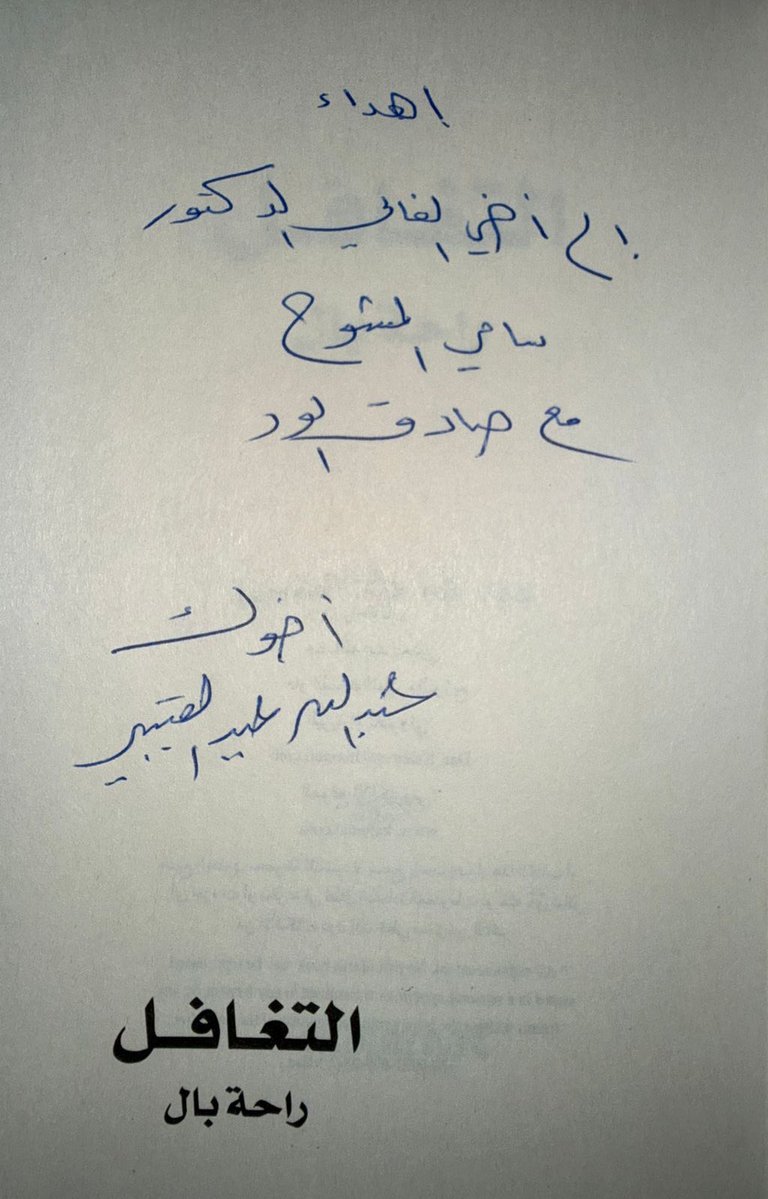 اهداء
إلى أخي الغالي الدكتور
سامي المشوح
مع صادق الود
أخوك
عبدالله عيد العتيبي
التغافل
راحة بال